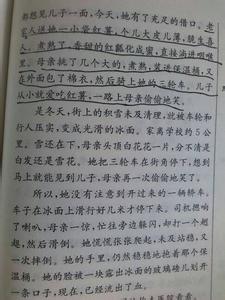 都想见儿子一面,今天,她有了充足的借口。老
家人送她一小袋红薯,个儿大皮儿薄,脆生喜
人。煮熟了,香甜的红瓤化成蜜,直接淌进咽喉
里。母亲挑了几个大的,煮熟,装进保温桶,又
在外面包了棉衣,然后骑上她的三轮车。儿子
从小就爱吃红薯,一路上母亲偷偷地笑。
是冬天,街上的积雪未及清理,就被车轮和
行人压实,变成光滑的冰面。家离学校约5公
里。雪还在下,母亲头顶白花花一片,分不清是
白发还是雪花。她把三轮车在街角停下,想到
马上就能见到儿子,母亲再一次偷偷地笑了。
所以,她没有注意到开过来的一辆轿车。
车子在冰面上滑行好几米才停下来。司机摁响
了喇叭,母亲一惊,忙往旁边躲闪,却打一个趔
趄,然后滑倒。她慌慌张张爬起,未及站稳,又
一次摔倒。她的手里,仍然稳稳地抱着那个保
温桶。她的脸被一块露出冰面的玻璃碴儿划开
一条口子,现在,已经流出了血。